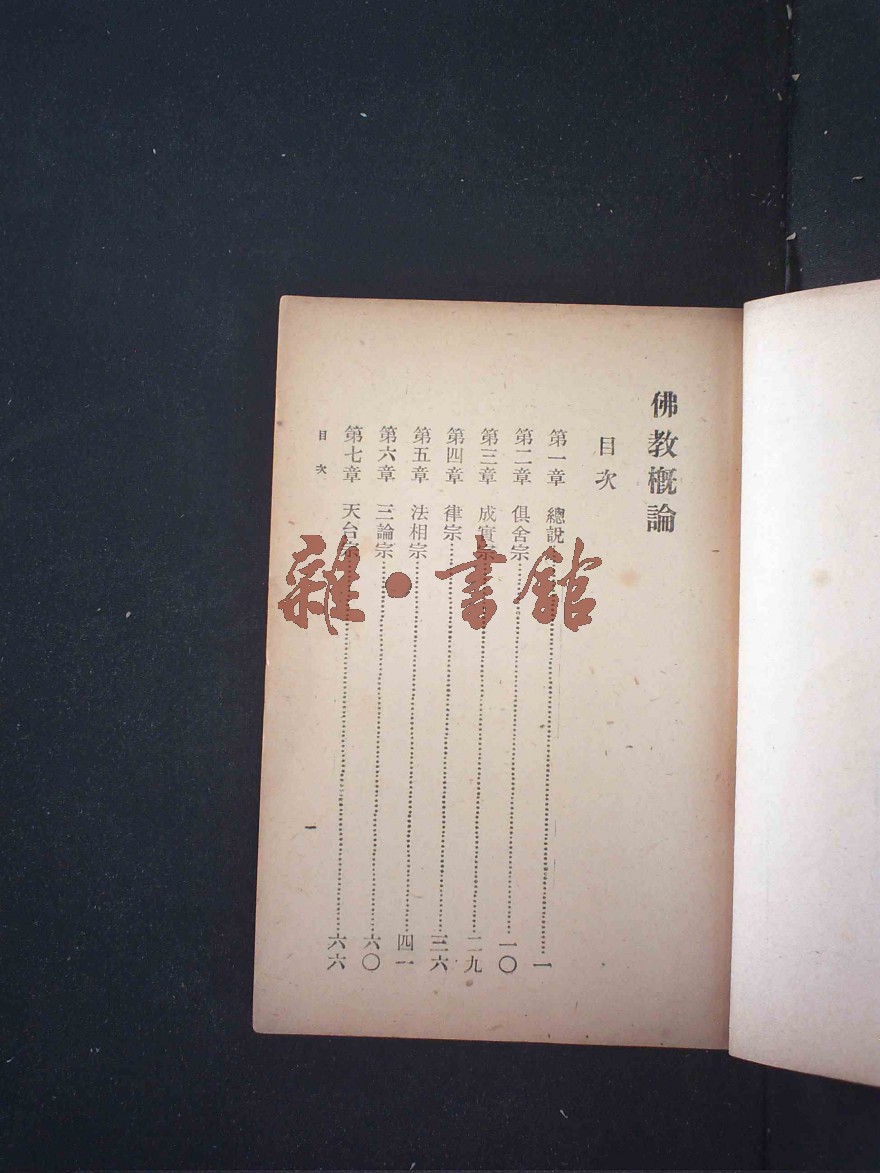 佛教概論
目次
第一章 總說……一
第二章 俱舍宗……一〇
第三章 成實宗……二九
第四章 律宗……三六
第五章 法相宗……四一
第六章 三論宗……六〇
第七章 天台宗……六六
目次
一
雜·書館